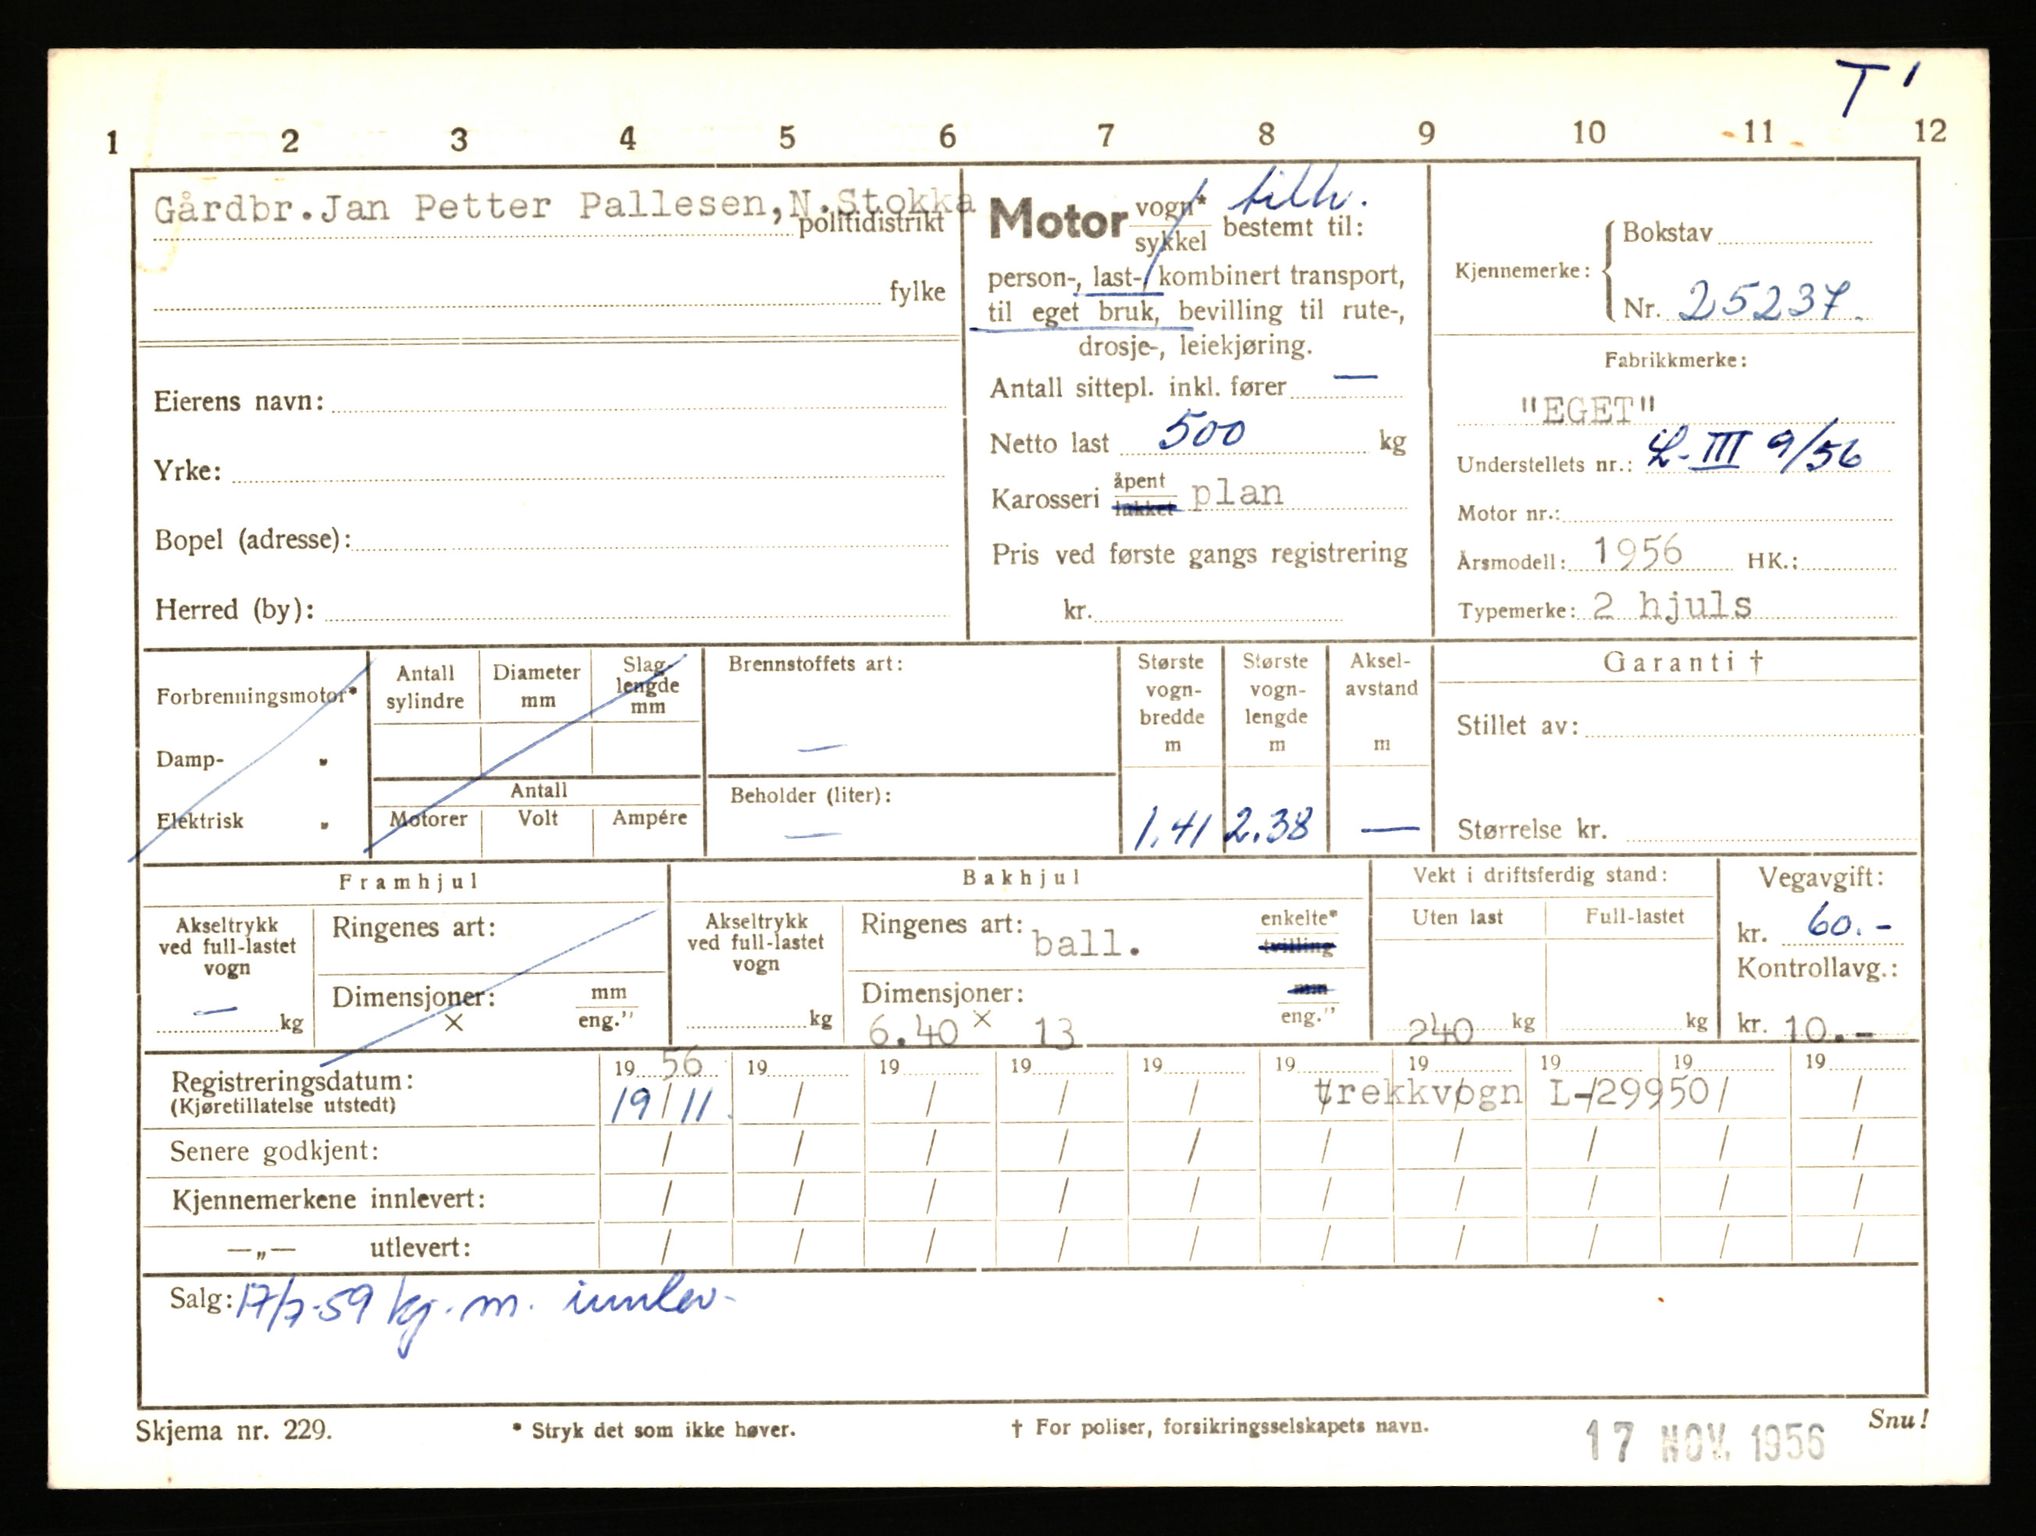 T '
1 2 3 4 5 6 7 8 9 10 11 12
Gårdbr.Jan Petter Pallesen,N.Stokka
politidistrikt
fylke
Eierens navn:
Yrke:
Bopel (adresse):
Herred (by):
Motor vogn* sykkel tilh. bestemt til:
person-, last-, kombinert transport,
til eget bruk, bevilling til rute-,
drosje-, leiekjøring.
Antall sittepl. inkl. fører —
Netto last 500 kg
Karosseri åpent lukket plan
Pris ved første gangs registrering
kr.
Kjennemerke: Bokstav
Nr. 25237.
Fabrikkmerke:
"EGET"
Understellets nr.: L-III 9/56
Motor nr.:
Årsmodell: 1956 HK.:
Typemerke: 2 hjuls
Forbrenningsmotor*
Damp- "
Elektrisk "
Antall sylindre
Diameter mm
Slag-lengde mm
Antall
Motorer Volt Ampére
Brennstoffets art:
—
Beholder (liter):
—
Største vogn-bredde m
1.41
Største vogn-lengde m
2.38
Aksel-avstand m
—
Garanti †
Stillet av:
Størrelse kr.
Framhjul
Akseltrykk ved full-lastet vogn
— kg
Ringenes art:
Dimensjoner: mm eng."
×
Bakhjul
Akseltrykk ved full-lastet vogn
kg
Ringenes art: ball. enkelte* tvilling
Dimensjoner: mm eng."
6.40 × 13
Vekt i driftsferdig stand:
Uten last Full-lastet
240 kg kg
Vegavgift:
kr. 60.-
Kontrollavg.:
kr. 10.-
Registreringsdatum: 19 56 19 19 19 19 19 19 19 19 19
(Kjøretillatelse utstedt) 19/11. / / / / trekkvogn L-29950 /
Senere godkjent: / / / / / / / / / /
Kjennemerkene innlevert: / / / / / / / / / /
—„— utlevert: / / / / / / / / / /
Salg: 17/7-59 kj. m. innlev-
Skjema nr. 229. * Stryk det som ikke høver. † For poliser, forsikringsselskapets navn. Snu!
17 NOV. 1956